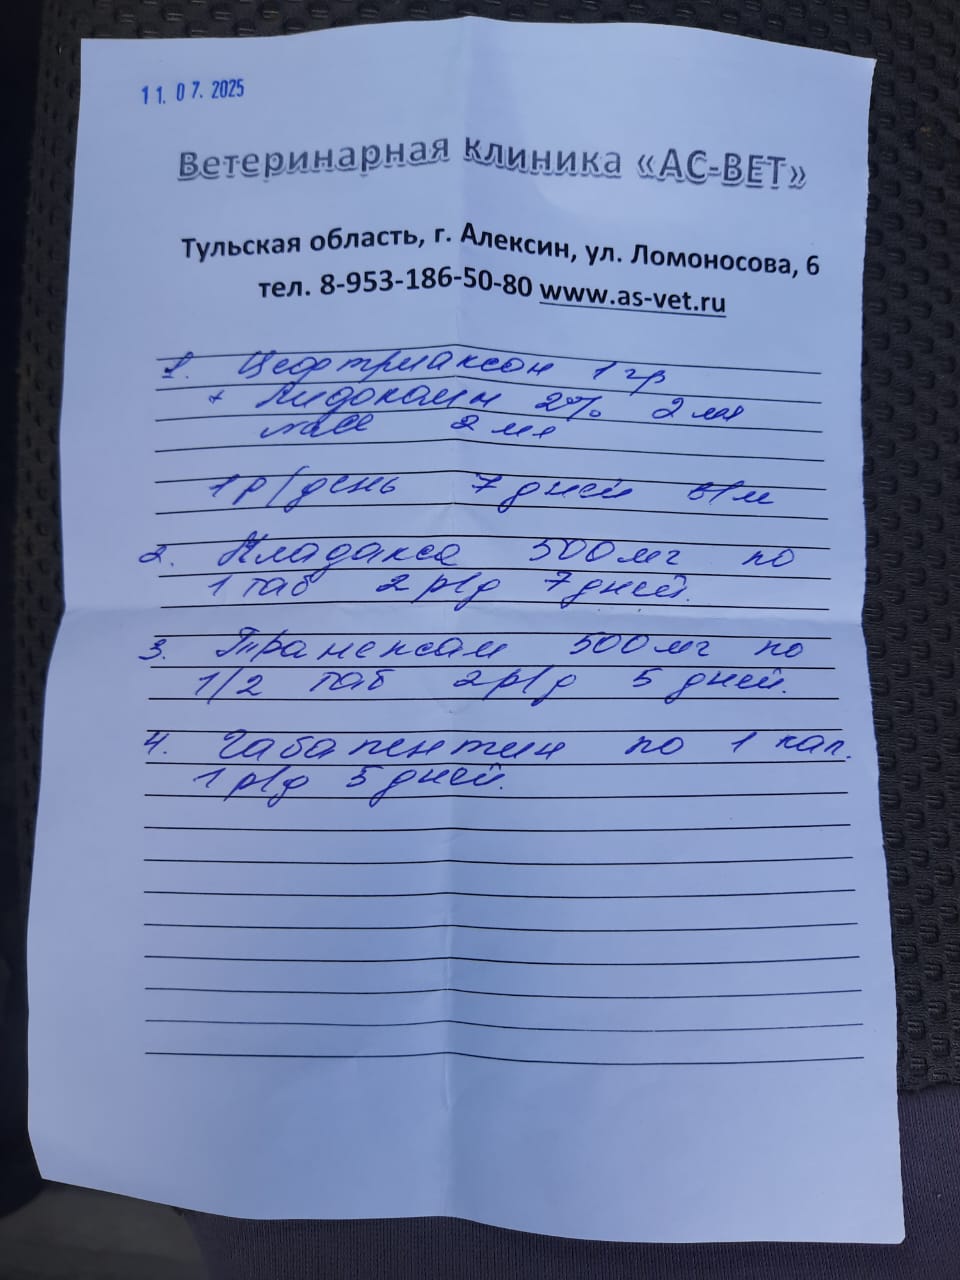 11.07.2025
Ветеринарная клиника «АС-ВЕТ»
Тульская область, г. Алексин, ул. Ломоносова, 6
тел. 8-953-186-50-80 www.as-vet.ru
1. Цефтриаксон 1 гр
+ Лидокаин 2% 2 мл
2 мл
1 р/день 7 дней в/м
2. 500 мг по
1 таб 2 р/д 7 дней.
3. Транексам 500 мг по
1/2 таб 2 р/д 5 дней.
4. Габапентин по 1 кап.
1 р/д 5 дней.